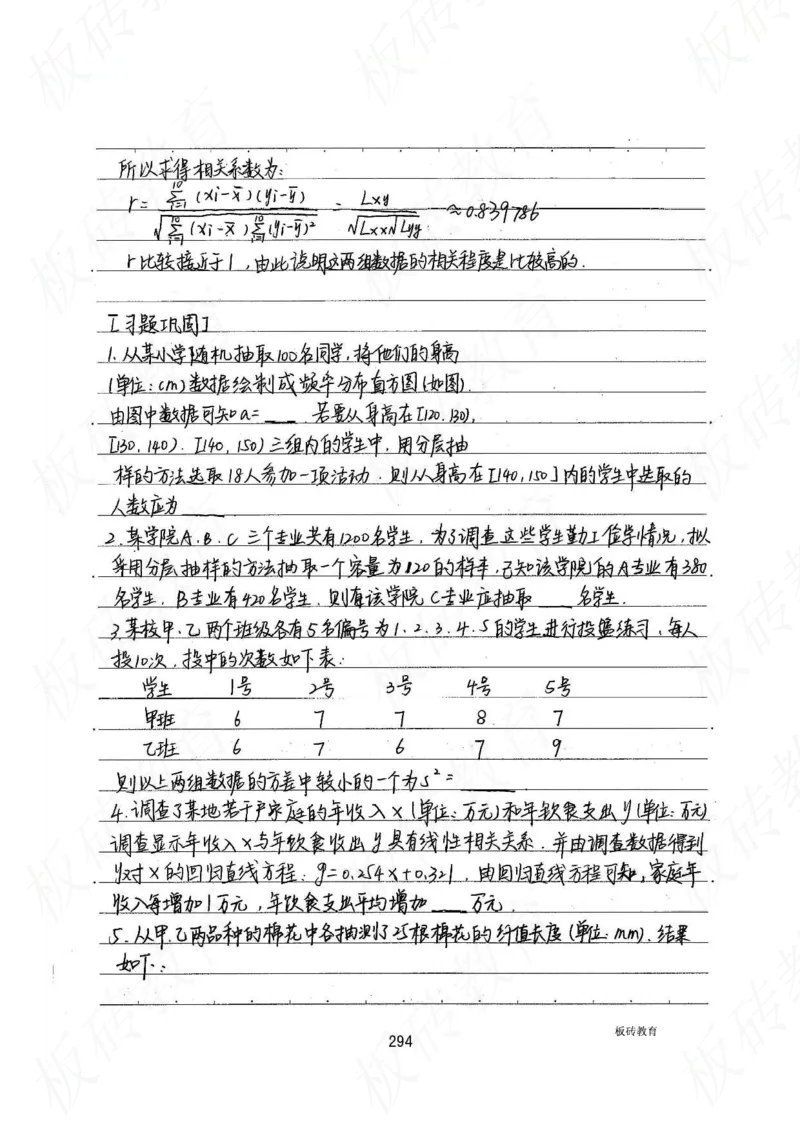 所以求得相关系数为:
r = \frac{\sum_{i=1}^{10}(xi-x̄)(yi-ȳ)}{\sqrt{\sum_{i=1}^{10}(xi-x̄)\sum_{i=1}^{10}(yi-ȳ)²}} = \frac{Lxy}{\sqrt{Lxx}\sqrt{Lyy}} ≈0.839786
r比较接近于1,由此说明这两组数据的相关程度是比较高的.
[习题巩固]
1.从某小学随机抽取100名同学,将他们的身高
(单位:cm)数据绘制成频率分布直方图(如图).
由图中数据可知a=____.若要从身高在[120.130),
[130,140).[140,150)三组内的学生中,用分层抽
样的方法选取18人参加一项活动.则从身高在[140,150]内的学生中选取的
人数应为____
2.某学院A.B.C三个专业共有1200名学生,为了调查这些学生勤工俭学情况,拟
采用分层抽样的方法抽取一个容量为120的样本,已知该学院的A专业有380
名学生.B专业有420名学生.则有该学院C专业应抽取____名学生.
3.某校甲.乙两个班级各有5名编号为1.2.3.4.5的学生进行投篮练习,每人
投10次,投中的次数如下表:
学生 1号 2号 3号 4号 5号
甲班 6 7 7 8 7
乙班 6 7 6 7 9
则以上两组数据的方差中较小的一个为S²=____.
4.调查了某地若干户家庭的年收入x(单位:万元)和年饮食支出y(单位:万元)
调查显示年收入x与年饮食收出y具有线性相关关系.并由调查数据得到
y对x的回归直线方程:y=0.254x+0.321.由回归直线方程可知,家庭年
收入每增加1万元,年饮食支出平均增加____万元.
5.从甲.乙两品种的棉花中各抽测了25根棉花的纤值长度(单位:mm).结果
如下:
板砖教育
294